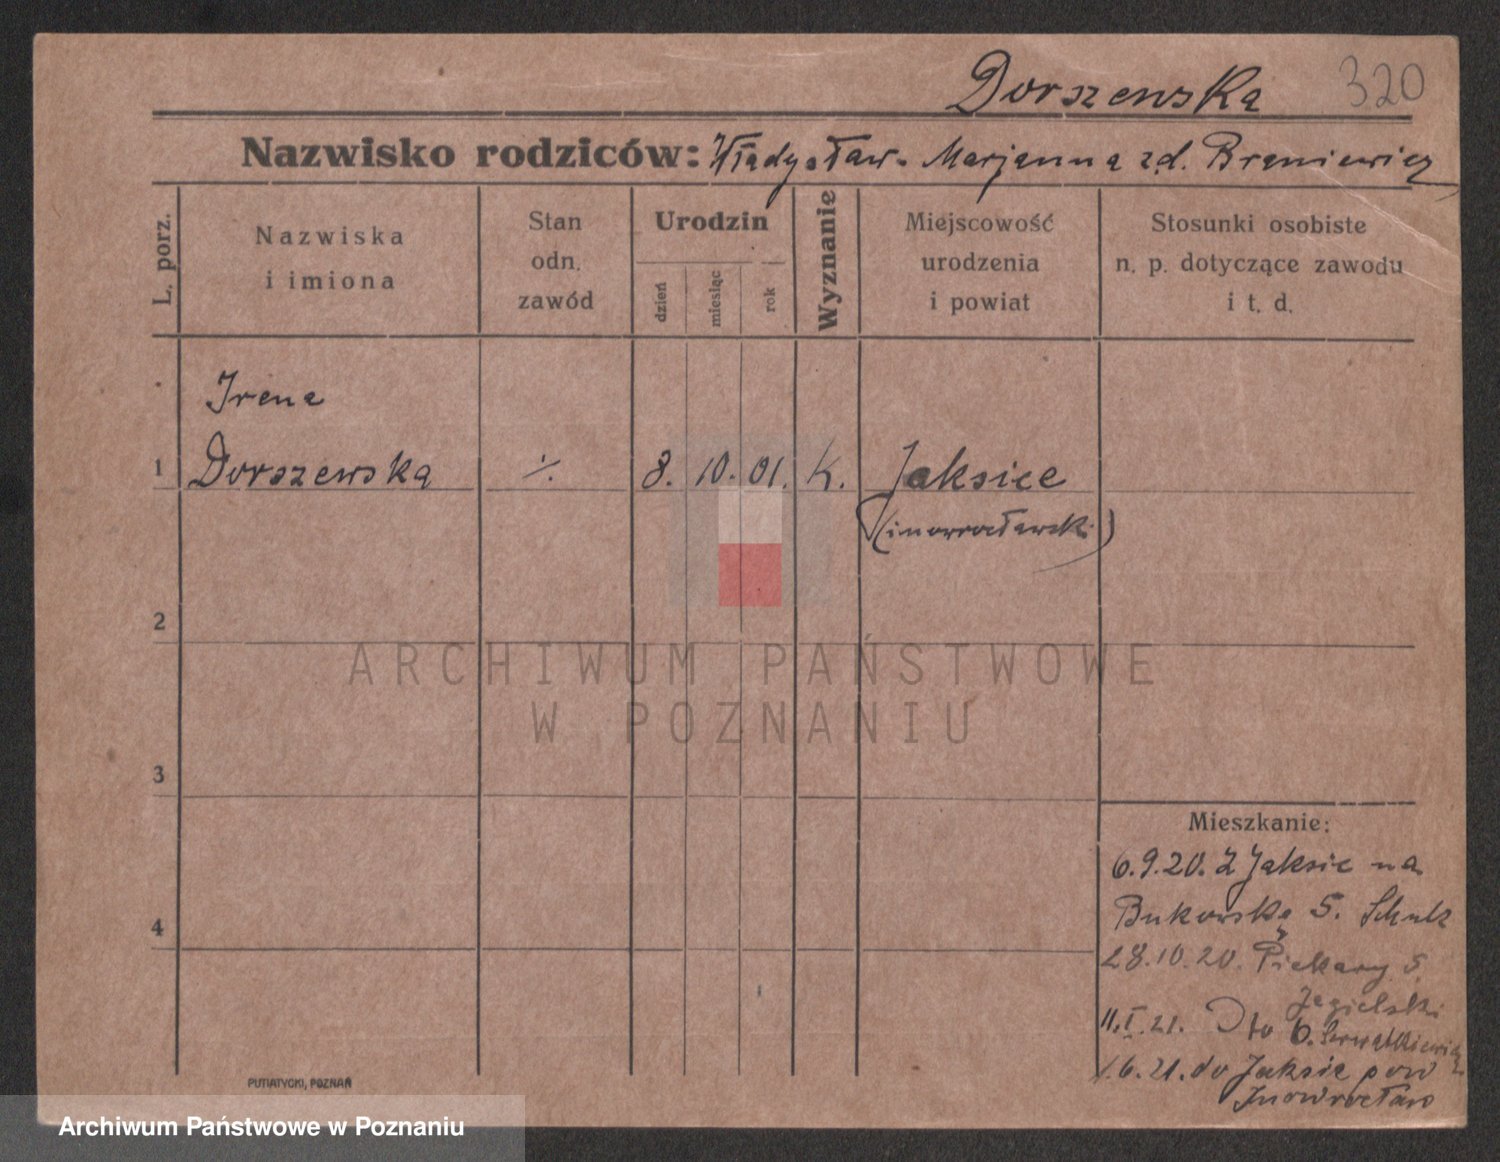 Dorszewska 320
Nazwisko rodziców: Władysław. Marjanna zd. Braniewicz
L. porz.
Nazwiska
i imiona
Stan
odn.
zawód
Urodzin
dzień
miesiąc
rok
Wyznanie
Miejscowość
urodzenia
i powiat
Stosunki osobiste
n. p. dotyczące zawodu
i t. d.
Irena
1 Dorszewska ·/. 8. 10. 01. K. Jaksice
(inowrocławski)
2
ARCHIWUM PAŃSTWOWE
W POZNANIU
3
Mieszkanie:
6.9.20. Z Jaksic na
Bukowska 5. Schulz
4
28.10.20. Piekary 5
Jagielski
11.I.21. Dto 6.
1.6.21. do Jaksic pow
Inowrocław
PUTIATYCKI, POZNAŃ
Archiwum Państwowe w Poznaniu